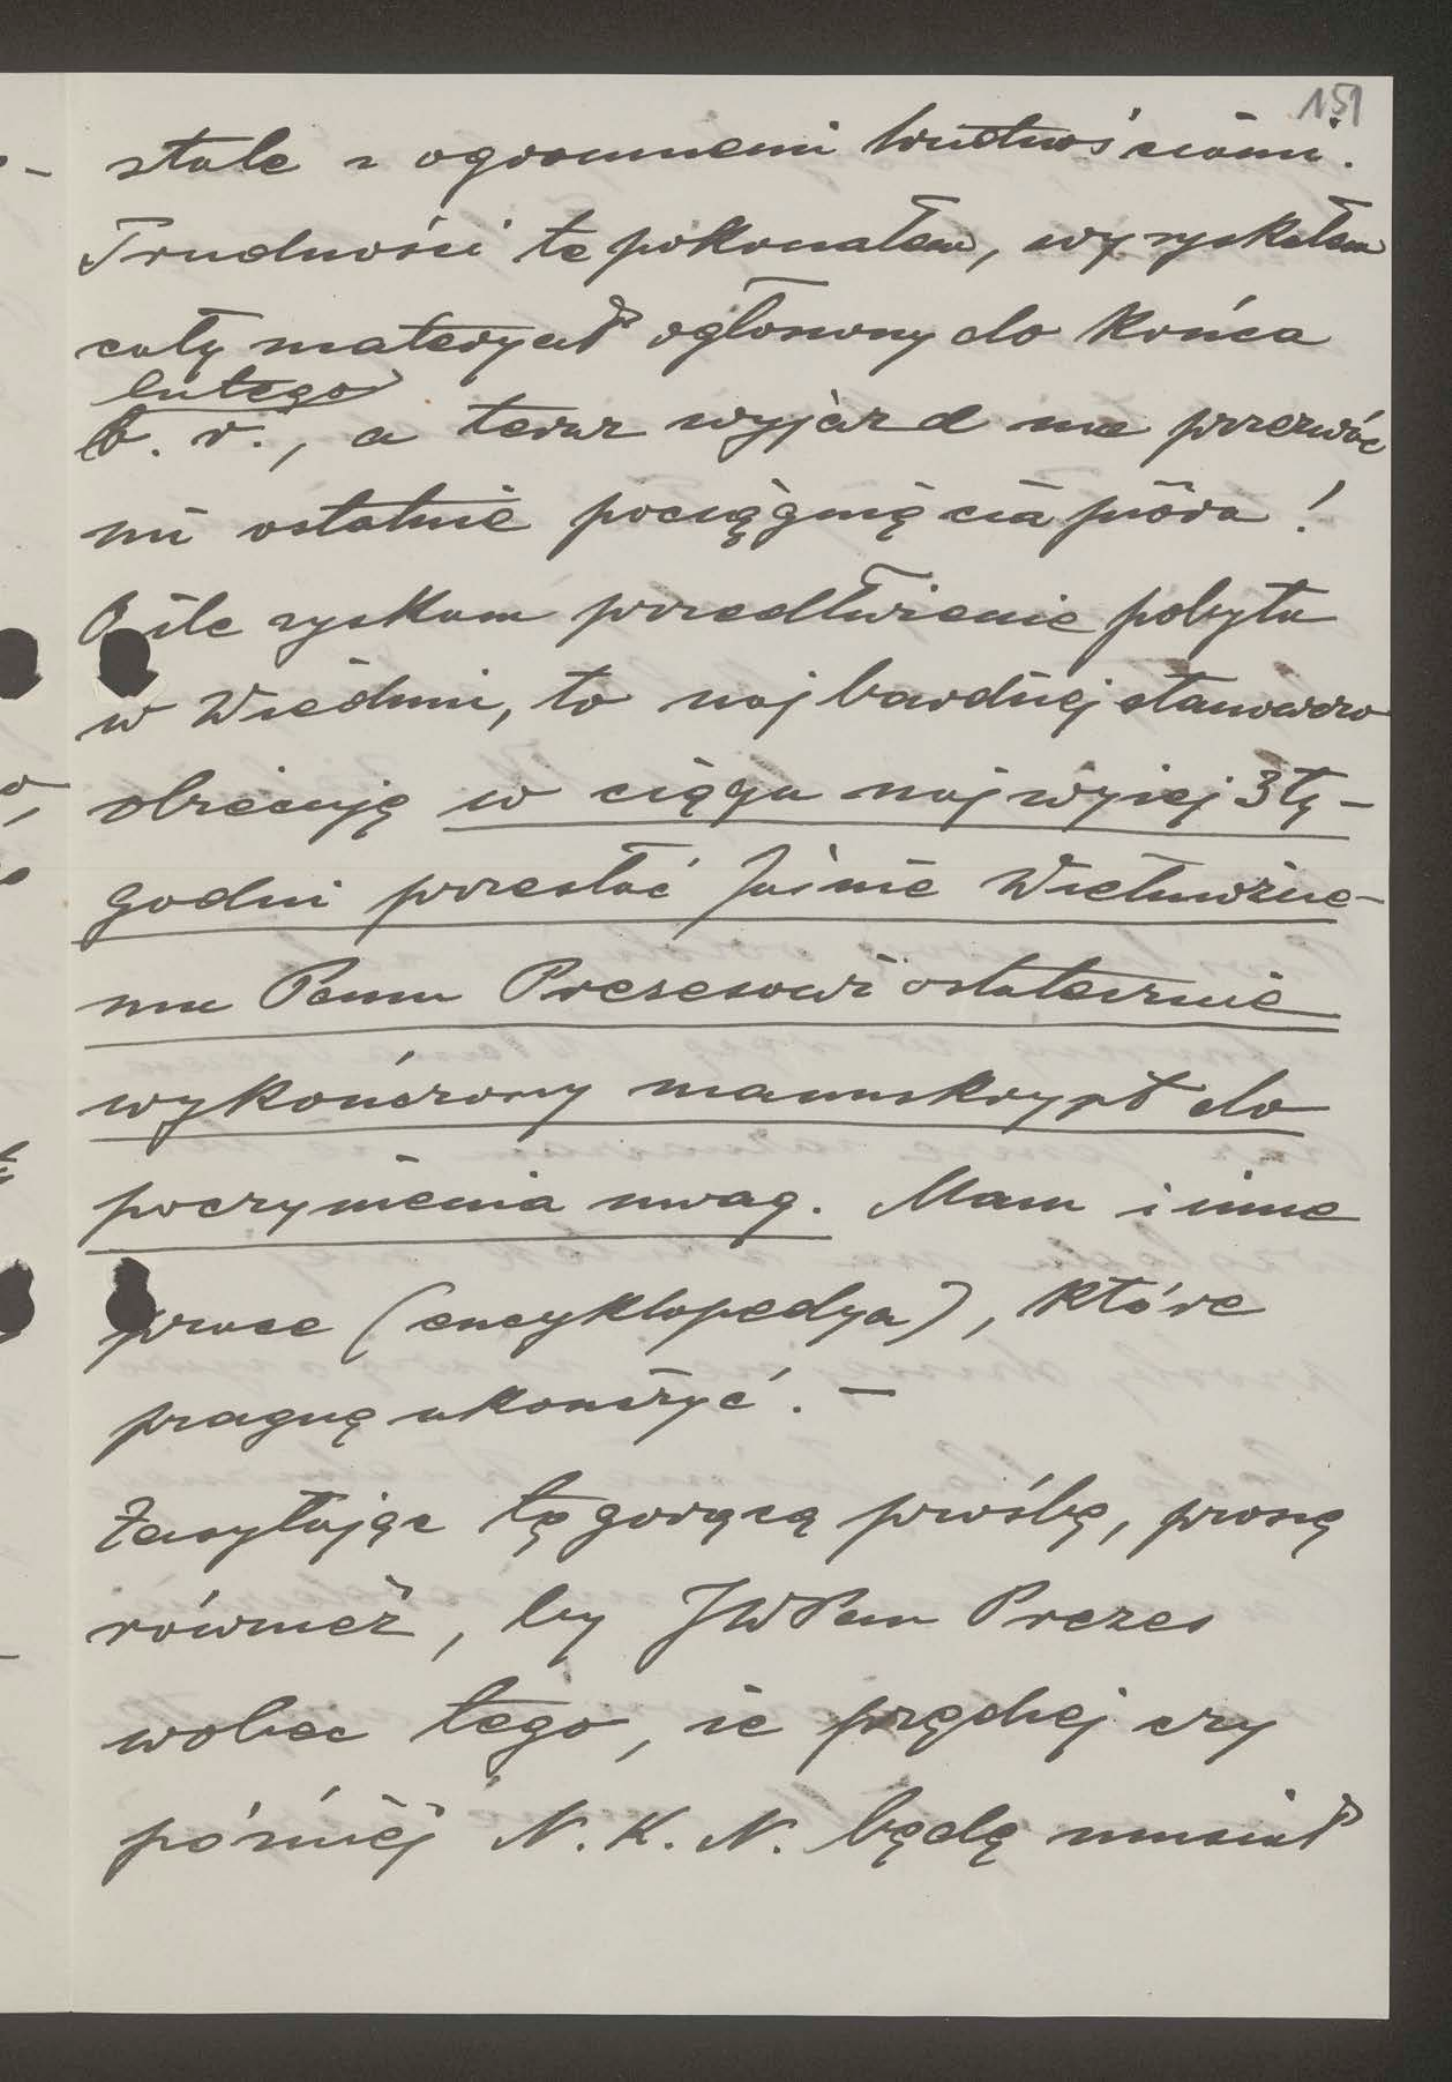 151
stale z ogromnemi trudnościami.
Trudności te pokonałem, wyzyskałem
cały materyał ogłoszony do końca
lutego
b. r., a teraz wyjazd ma przerwać
mi ostatnie pociągnięcia pióra!
O ile zyskam przedłużenie pobytu
w Wiedniu, to najbardziej stanowczo
obiecuję w ciągu najwyżej 3 ty-
godni przesłać Jaśnie Wielmożne-
mu Panu Prezesowi ostatecznie
wykończony manuskrypt do
poczynienia uwag. Mam i inne
prace (encyklopedya), które
pragnę ukończyć. —
Zasyłając tę gorącą prośbę, proszę
również, by JWPan Prezes
wobec tego, że prędzej czy
później N. K. N. będę musiał